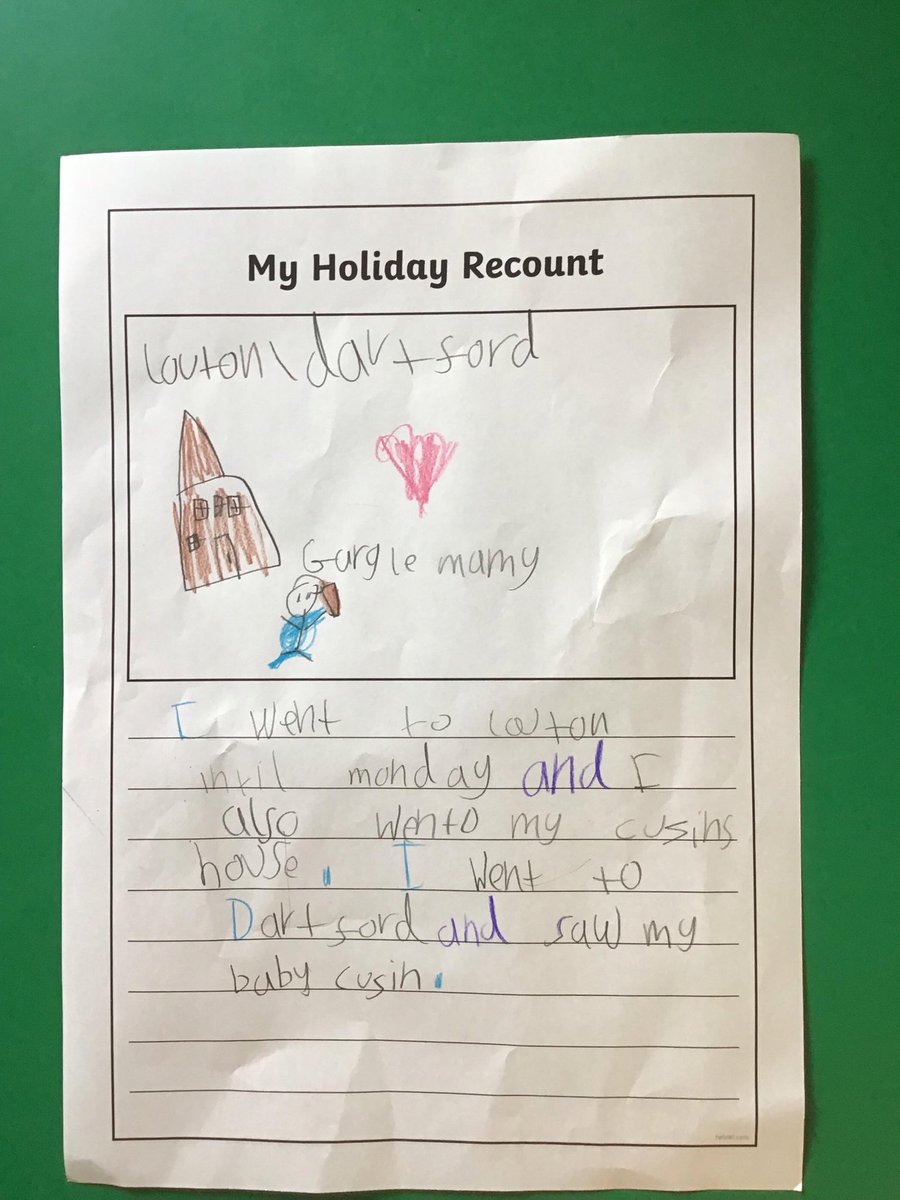 My Holiday Recount
louton\dartford
Gargle mamy
I went to louton
intil monday and I
also wento my cusins
house. I went to
Dartford and saw my
baby cusin.